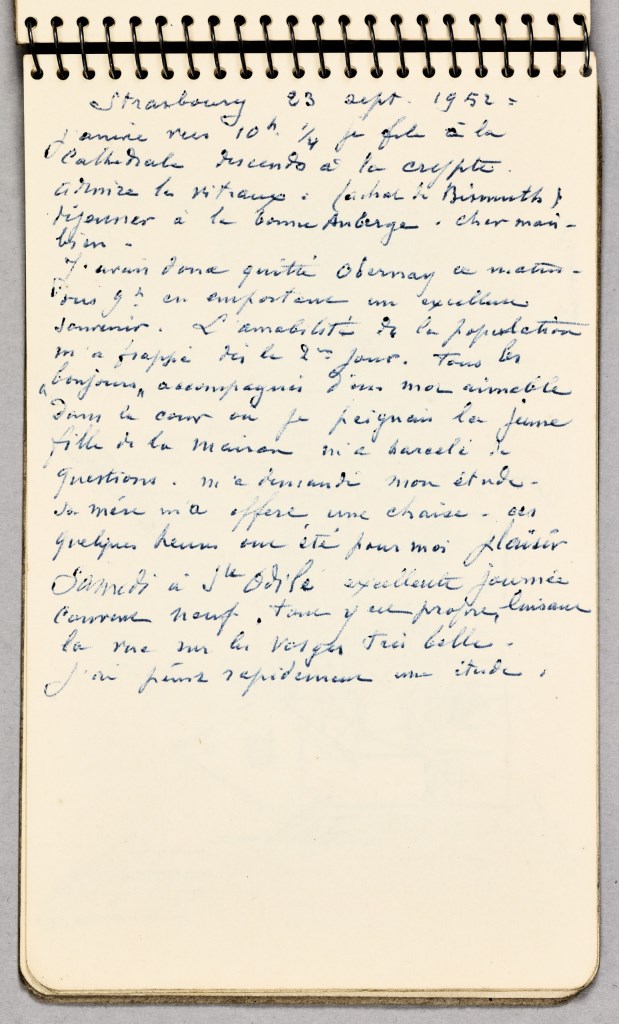 Strasbourg 23 sept. 1952 =
J'arrive vers 10h. 1/4 je file à la
Cathédrale descends à la crypte.
admire les vitraux. (achat de Bismuth)
déjeuner à la bonne Auberge. cher mais-
bien -
J'avais donc quitté Obernay ce matin-
vers 9h en emportant un excellent
souvenir. L'amabilité de la population
m'a frappé dès le 2me jour. Tous les
"bonjours" accompagnés d'un mot aimable
Dans la cour où je peignais la jeune
fille de la maison m'a harcelé de
questions. m'a demandé mon étude-
sa mère m'a offert une chaise - ces
quelques heures ont été pour moi plaisir
Samedi à Ste Odile excellente journée
Couvent neuf. tout y est propre, luisant
la vue sur les Vosges très belle -
J'ai peint rapidement une étude.